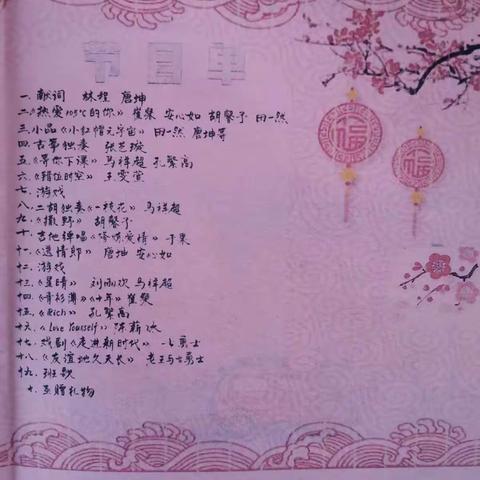 节目单
一.献词 林程 唐坤
二.《热爱105℃的你》 崔粲 安心如 胡馨予 田一然
三.小品《小红帽元宇宙》 田一然 唐坤等
四.古筝独奏 张芝璇
五.《等你下课》马祥超 孔繁高
六.《错位时空》 王雯萱
七.游戏
八.二胡独奏《一枝花》马祥超
九.《撒野》 胡馨予
十.吉他弹唱《修炼爱情》于果
十一.《送情郎》 唐坤 安心如
十二.游戏
十三.《星晴》 刘雨欢 马祥超
十四.《青衫薄》《十年》崔粲
十五.《Rich》 孔繁高
十六.《Love Yourself》陈薪
十七.戏剧《走进新时代》 七勇士
十八.《友谊地久天长》 老王与七勇士
十九.班歌
十.互赠礼物
福
福